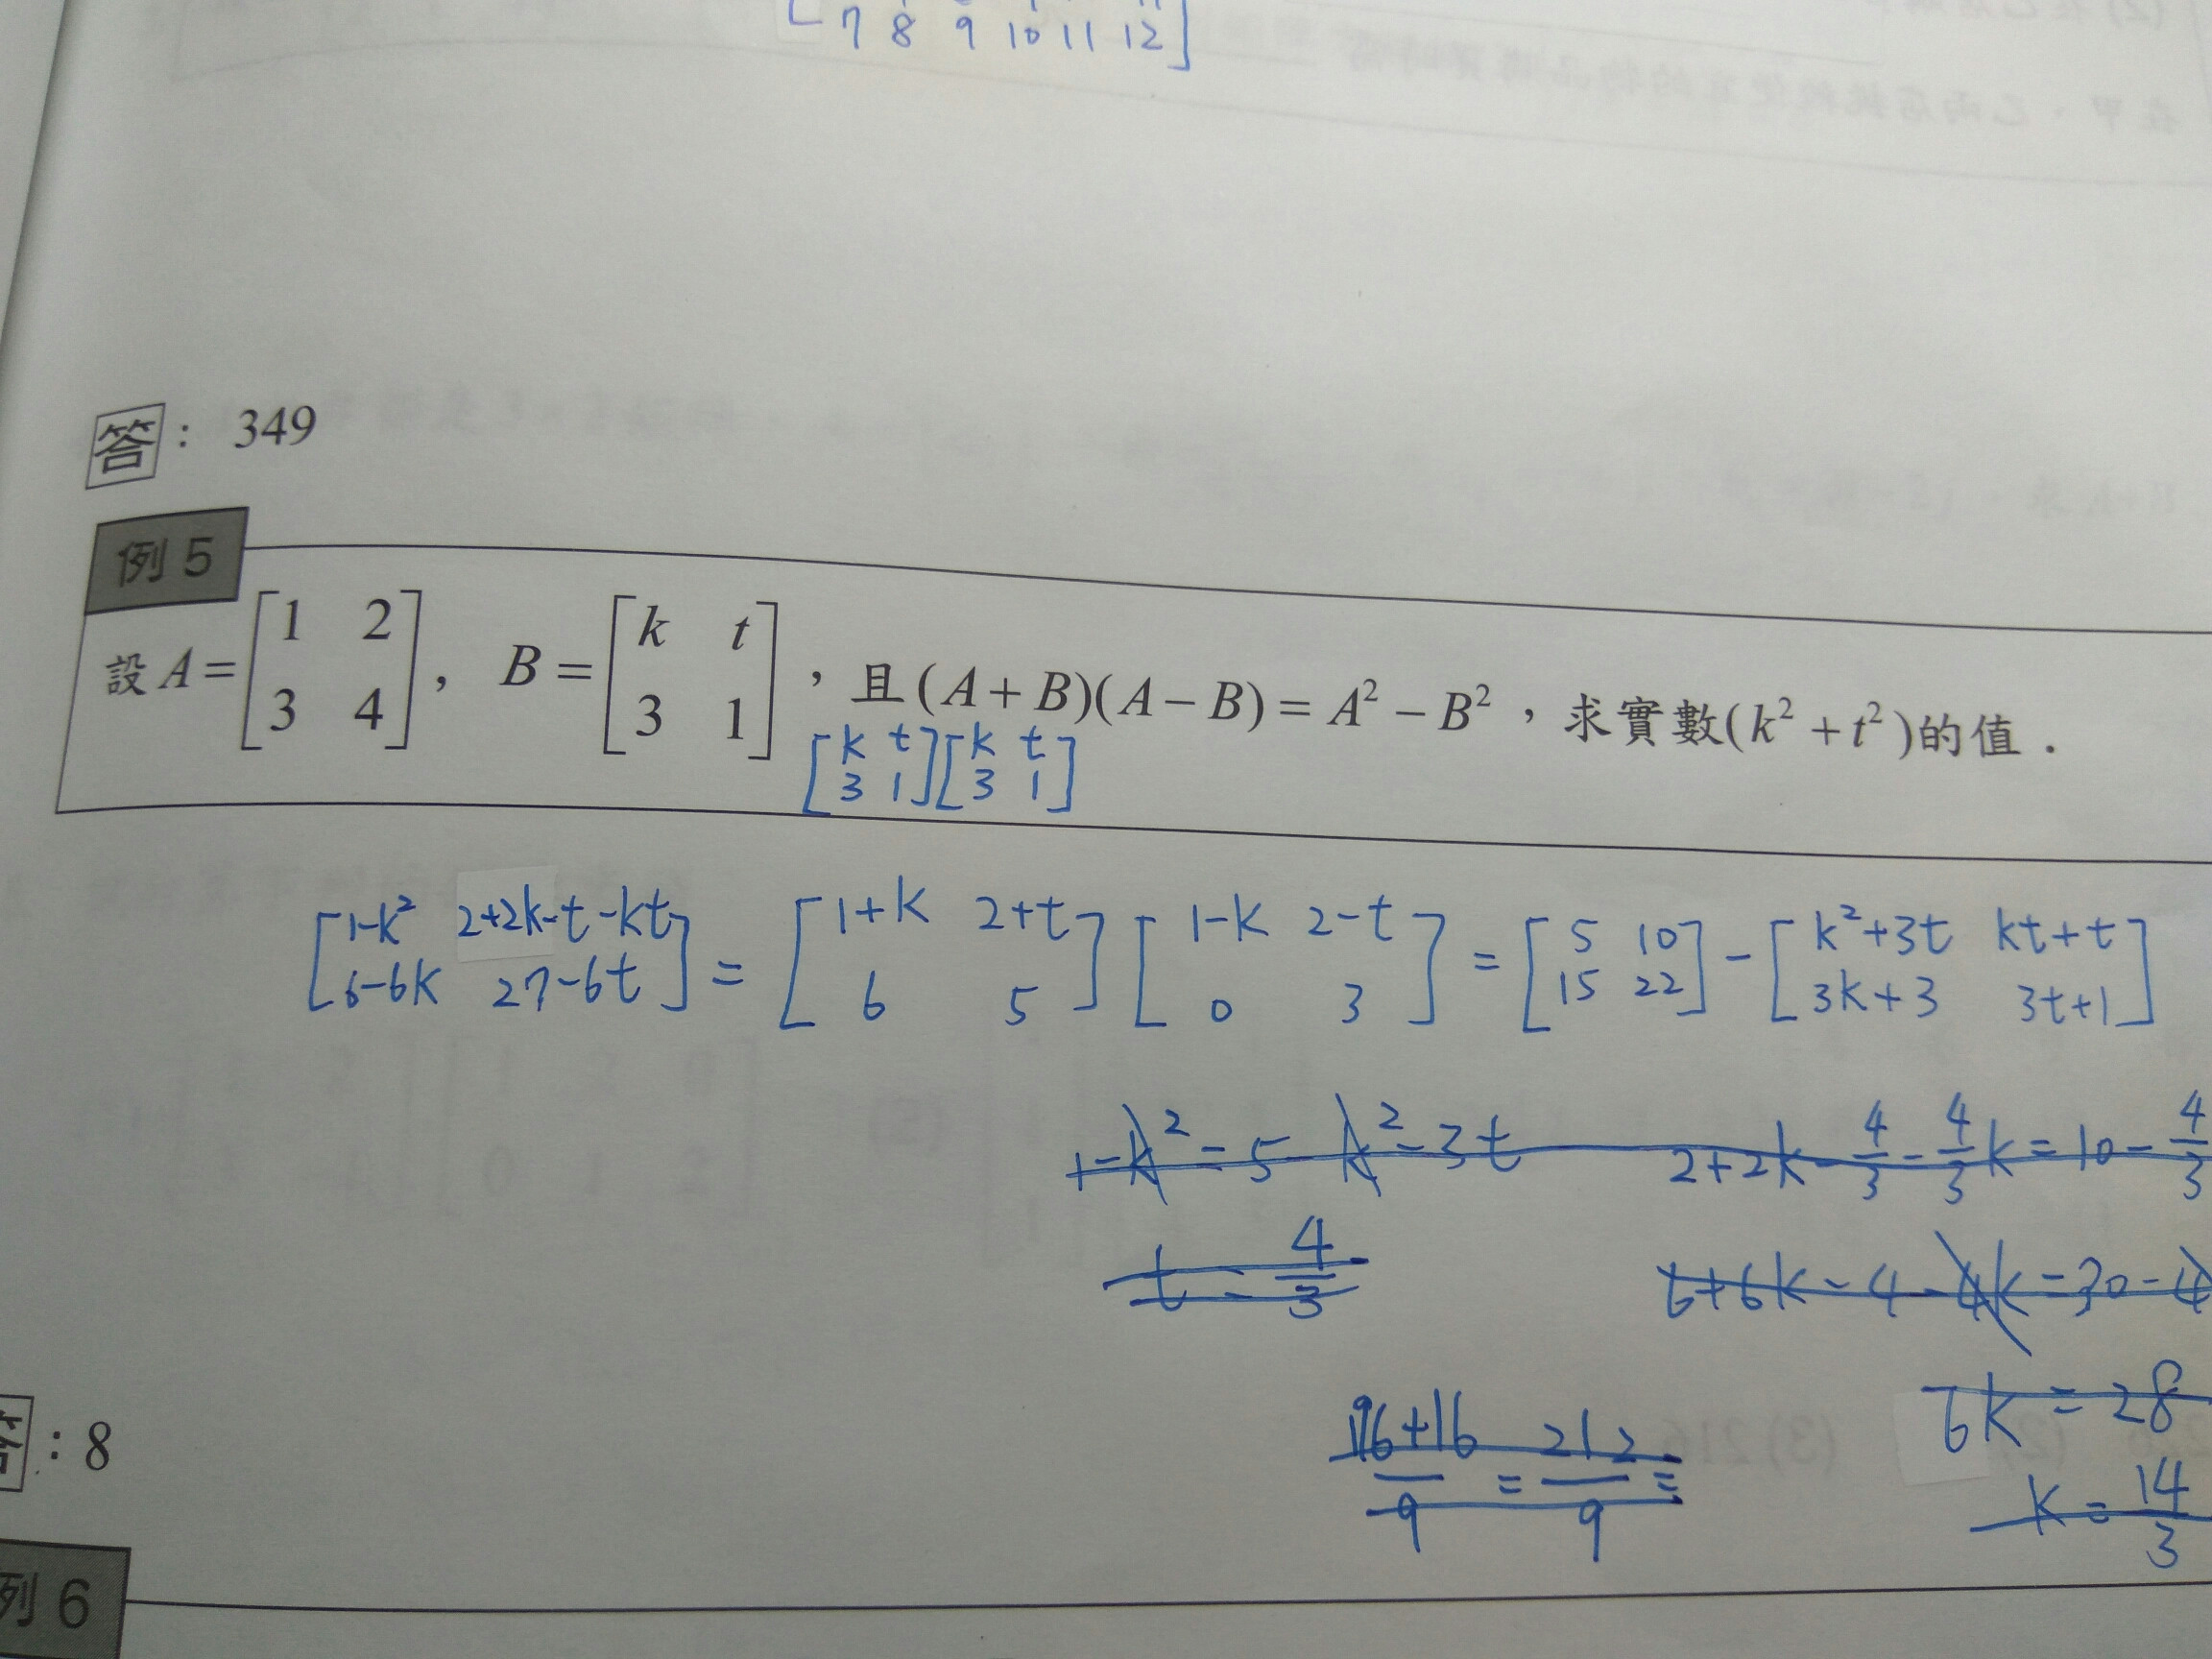 7 8 9 10 11 12
答： 349
例 5
設 A = [1 2; 3 4] ， B = [k t; 3 1] ，且 (A + B)(A − B) = A² − B² ，求實數 (k² + t²) 的值．
[k t; 3 1] [k t; 3 1]
[1-k² 2+2k-t-kt; 6-6k 27-6t] = [1+k 2+t; 6 5] [1-k 2-t; 0 3] = [5 10; 15 22] - [k²+3t kt+t; 3k+3 3t+1]
1-k² = 5-k²-3t 2+2k-4/3-4/3k=10-4/3
t = 4/3 6+6k-4-4k=30-4
6k = 28
196+16/9 = 212/9 =
k = 14/3
答：8
例 6